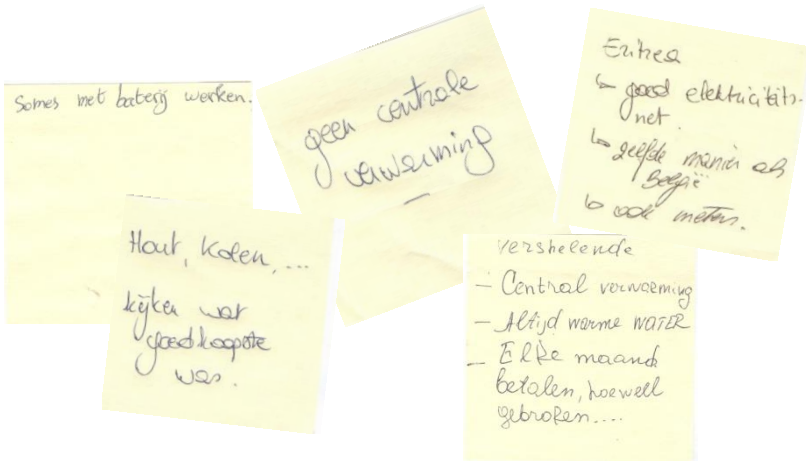 Somes met baterij werken.
geen centrale
verwarming
Eritrea
↳ goed elektriciteits-
net.
↳ zelfde manier als
België
↳ ook meters.
Hout, Kolen, ...
kijken wat
goedkoopste
was.
Vershelende
- Central verwarming
- Altijd warme WATER
- Elke maand
betalen, hoewell
gebroken....